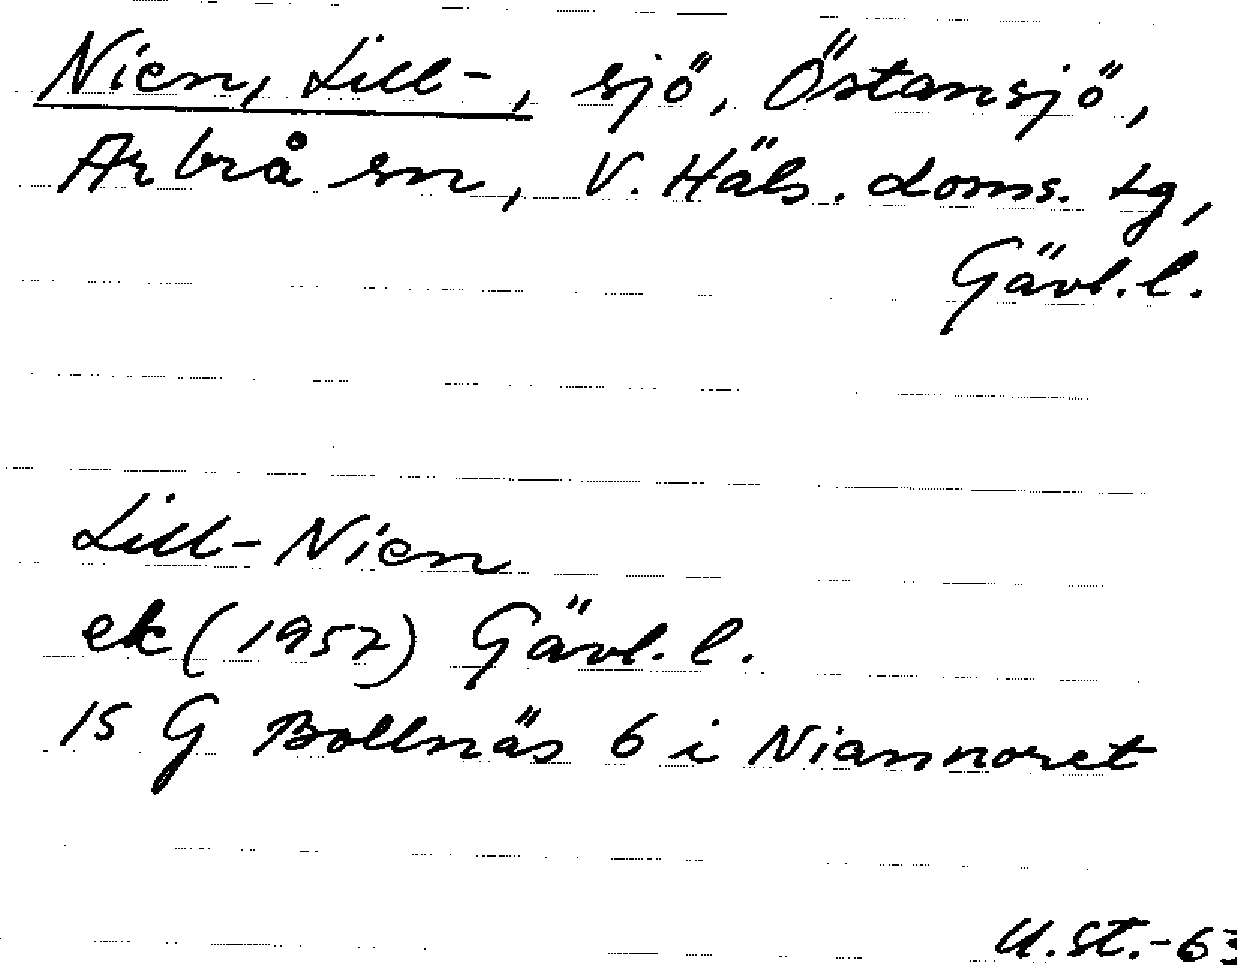 Nien, Lill-, sjö, Östansjö,
Arbrå sn, V. Häls. doms. tg,
Gävl.l.
Lill-Nien
ek (1952) Gävl.l.
15 G Bollnäs 6 i Niannoret
U.St.-63